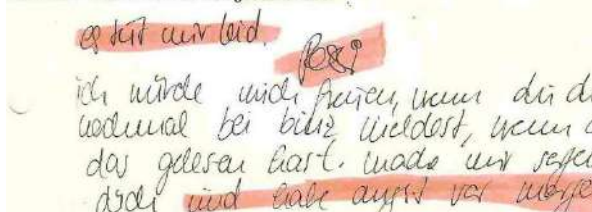 es tut mir leid.
ich würde mich freuen, wenn du d
nochmal bei binz meldest, wenn d
das gelesen hast. mache mir
doch und habe angst vor morge